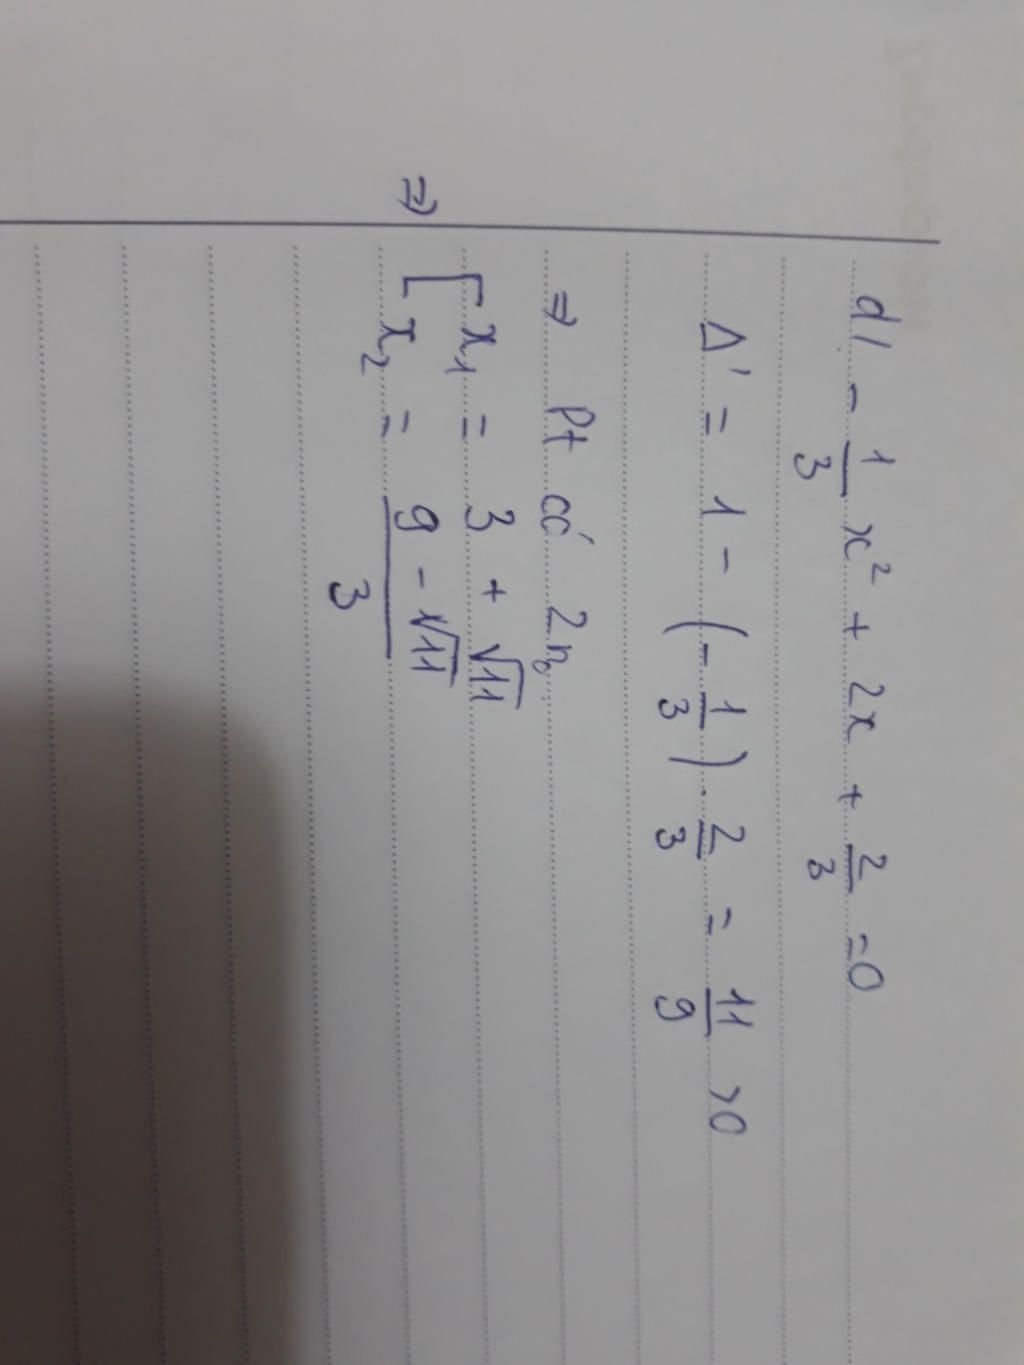 d/ - 1/3 x² + 2x + 2/3 = 0
Δ' = 1 - (- 1/3) . 2/3 = 11/9 > 0
⇒ Pt có 2 n₀
⇒ [ x₁ = 3 + √11
x₂ = (9 - √11)/3